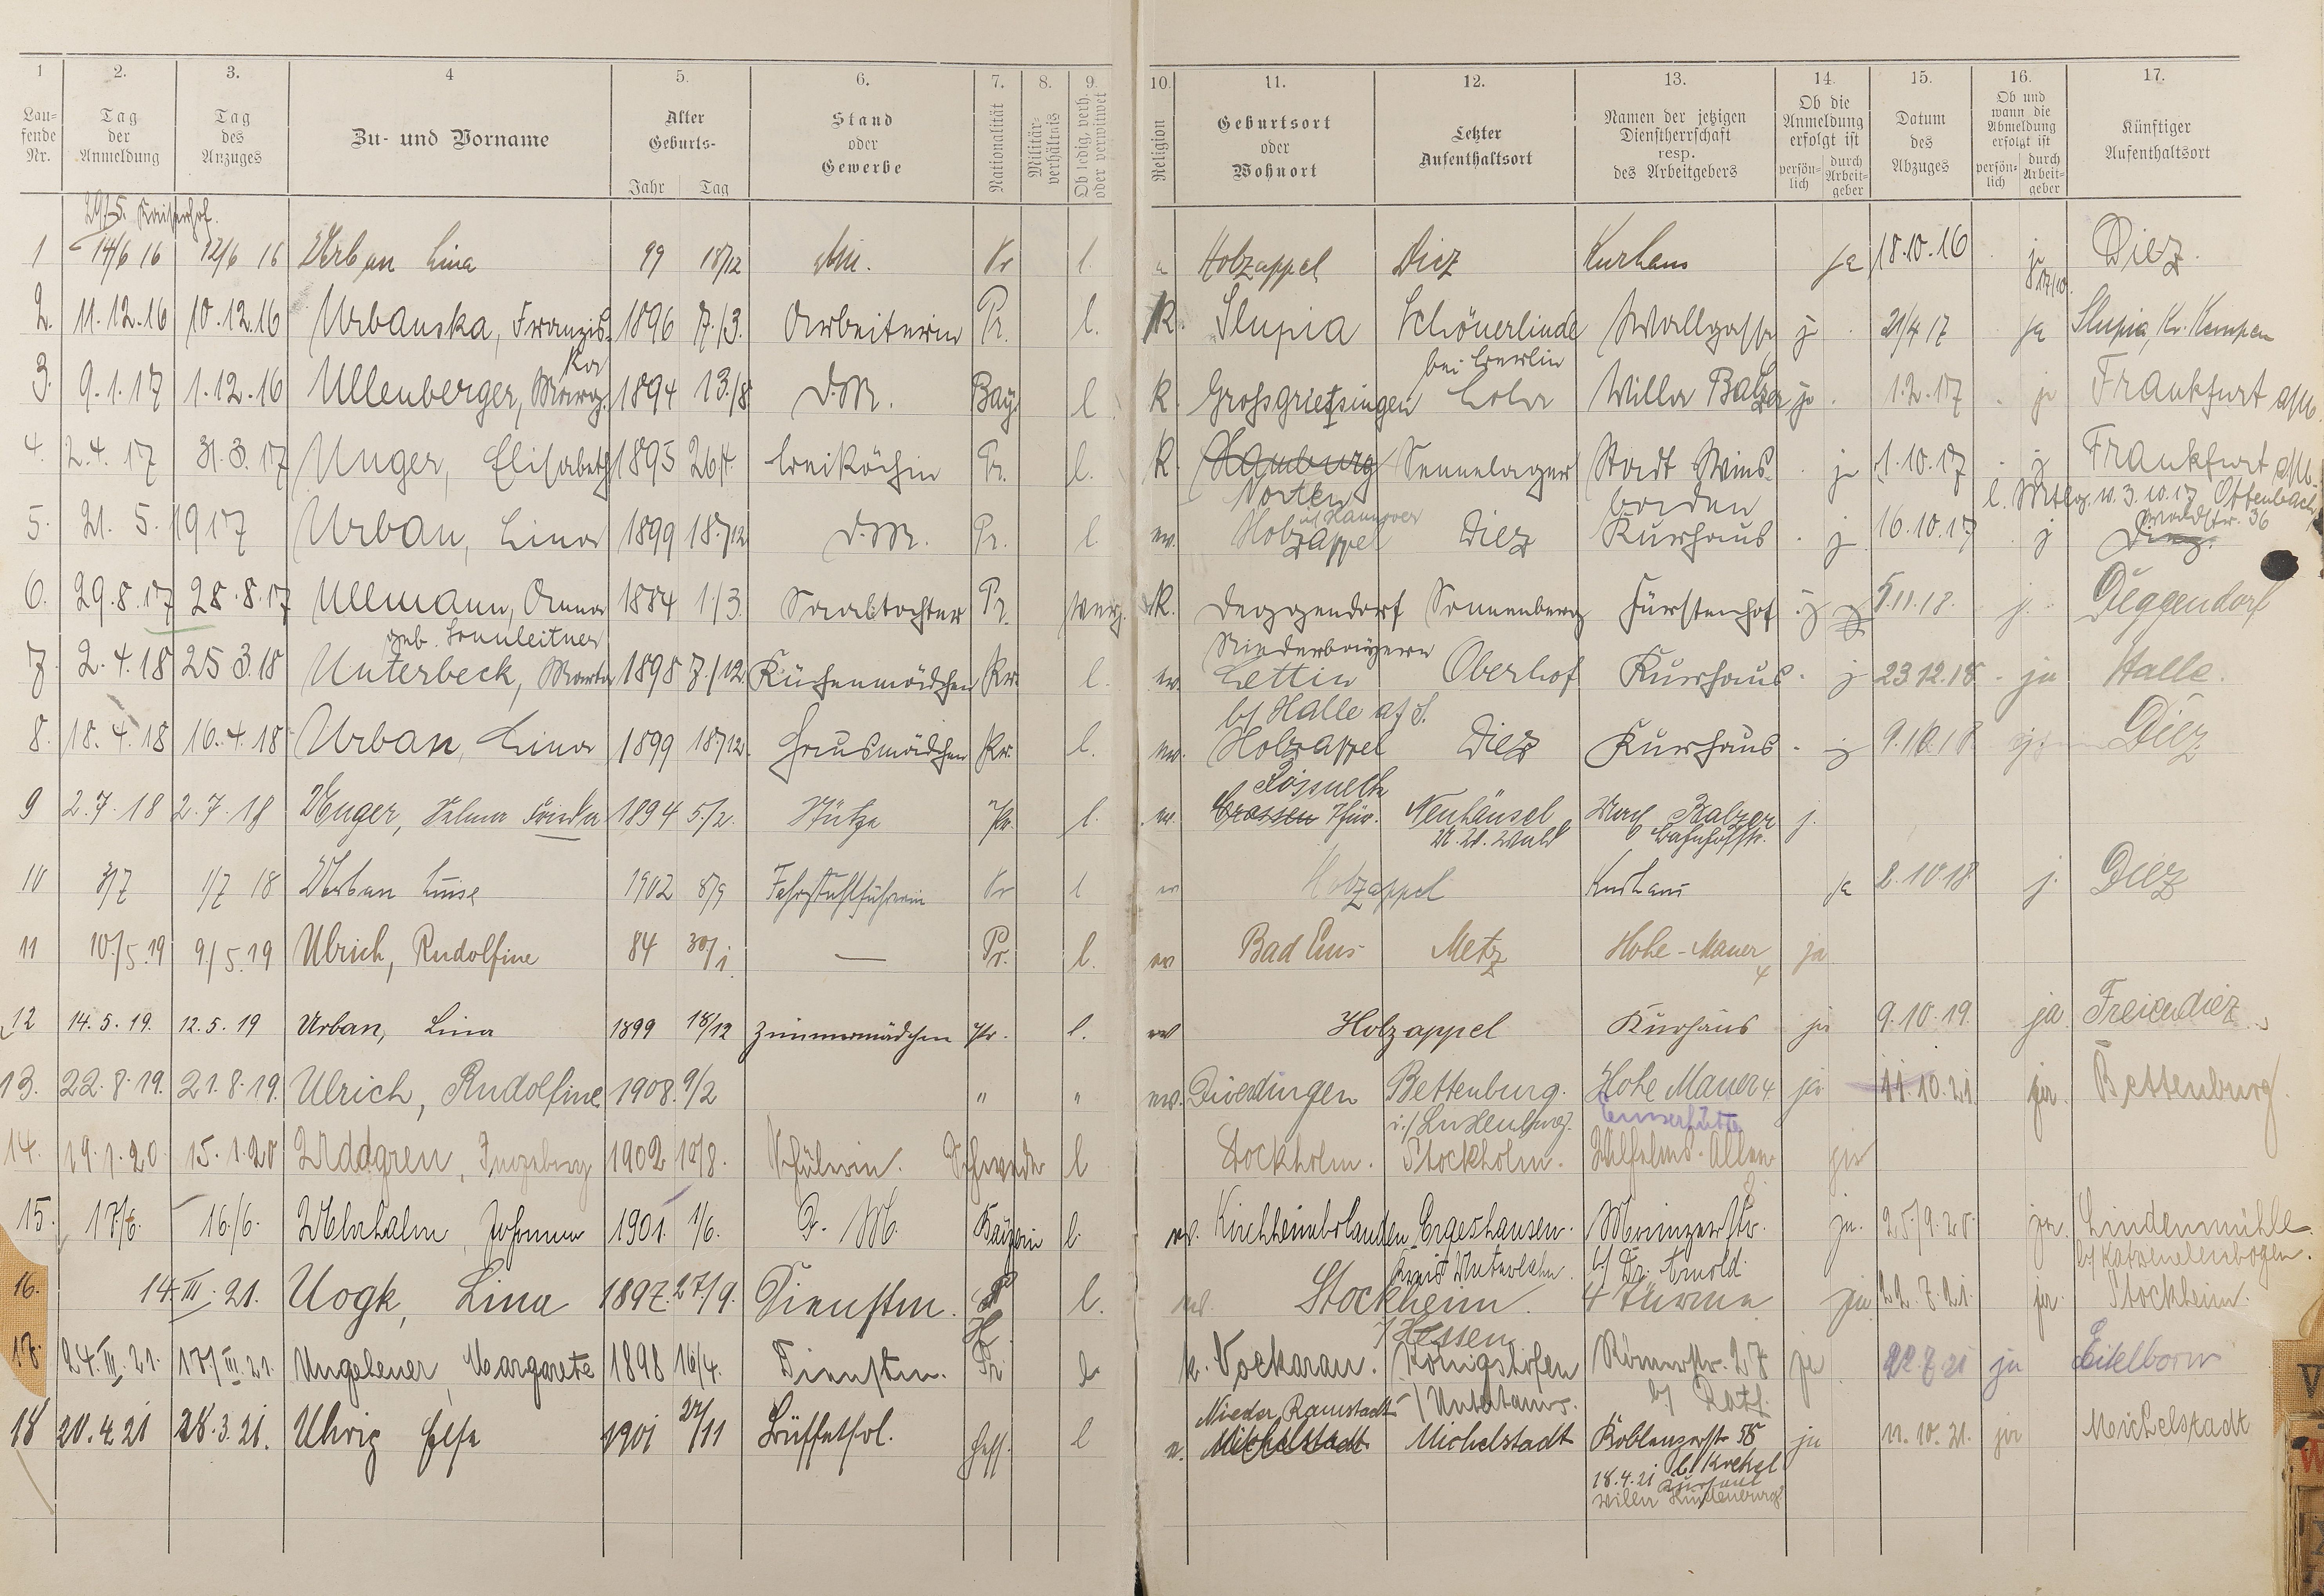 1 2. 3. 4 5. 6. 7. 8. 9. 10. 11. 12. 13. 14. 15. 16. 17.
Laufende Nr. Tag der Anmeldung Tag des Anzuges Zu- und Vorname Alter Geburts- Jahr Tag Stand oder Gewerbe Nationalität Militärverhältnis Ob ledig, verh. oder verwitwet Religion Geburtsort oder Wohnort Letzter Aufenthaltsort Namen der jetzigen Dienstherrschaft resp. des Arbeitgebers Ob die Anmeldung erfolgt ist persönlich durch Arbeitgeber Datum des Abzuges Ob und wann die Abmeldung erfolgt ist persönlich durch Arbeitgeber Künftiger Aufenthaltsort
29/5. Kaiserhof.
1 14/6 16 12/6 16 Urban Lina 99 18/12 Pr l. Holzappel Diez Kurhaus ja 18.10.16 ja Diez.
17/10.
2. 11.12.16 10.12.16 Urbanska, Franzis- 1896 7./3. Arbeiterin Pr. l. K. Slupia Schönerlinde Wallgasse j 21/4 17 ja Slupia, Kr. Kempen
ka bei Berlin
3. 9.1.17 1.12.16 Ullenberger, Marg. 1894 13./8 D.M. Bay. l K. Villa Balzer ja 1.2.17 ja Frankfurt a/M.
4. 2.4.17 31.3.17 Unger, Elisabeth 1895 26/4. Beiköchin Pr. l. K. Hamburg Sennelager Stadt Wies- ja 1.10.17 j Frankfurt a/M.
Norten baden
i/Hannover Offenbach,
5. 21.5.1917 Urban, Lina 1899 18./12 D.M. Pr. l. ev. Holzappel Diez Kurhaus j 16.10.17 j Diez.
6. 29.8.17 28.8.17 Ullmann, Anna 1884 1./3. Saaltochter Pr. K. Deggendorf Sonnenberg Fürstenhof j 5.11.18. j. Deggendorf
geb. Sonnleitner Niederbayern
7. 2.4.18 25.3.18 Unterbeck, Marta 1898 7./12. Küchenmädchen Pr. l. ev. Lettin Oberhof Kurhaus j 23.12.18 ja Halle.
b/ Halle a/S.
8. 18.4.18 16.4.18 Urban, Lina 1899 18./12. Hausmädchen Pr. l. ev. Holzappel Diez Kurhaus j 9.10.18 Diez
Pössneck
9 2.7.18 2.7.18 Unger, Selma Frida 1894 5./2. Stütze Pr. l. ev. Crossen Thür. Neuhäusel Balzer j.
U.W. Wald Bahnhofstr.
10 3/7 1/7 18 Urban Luise 1902 8/9 Fahrstuhlführerin Pr l ev Holzappel Kurhaus ja 2.10.18 j. Diez
11 10./5.19 9./5.19 Ulrich, Rudolfine 84 30/1. — Pr. l. ev Bad Ems Metz Hohe-Mauer ja
4
12 14.5.19. 12.5.19 Urban, Lina 1899 18/12 Zimmermädchen Pr. l. ev Holzappel Kurhaus ja 9.10.19. ja Freiendiez
13. 22.8.19. 21.8.19. Ulrich, Rudolfine 1908. 9/2 " " ev. Bettenburg. Hohe Mauer 4 ja 11.10.21. ja. Bettenburg.
i./Luxemburg. Emserhütte
14. 19.1.20 15.1.20 Uddgren, Ingeborg 1902 10/8. Schülerin. Schwede l Stockholm. Stockholm. Wilhelms-Allee ja
15. 17/6. 16./6. Johanna 1901. 1/6. D.M. Bayern l. ev. Kirchheimbolanden Ergeshausen. Mainzerstr. ja. 25/9.20. ja. Lindenmühle
Kreis Unterlahn. b/ Dr. Arnold. b/ Katzenelenbogen.
16. 14.III.21. Uogk, Lina 1897. 27/9. Dienstm. l. ev. Stockheim. 4 Türme ja 22.7.21. ja. Stockheim.
H. i/Hessen
17. 24.III.21. 17/III.21. Ungeheuer, Margarete 1898 16/4. Dienstm. Pr l. k. Königshofen Römerstr. 27 ja 22.7.21 ja Eitelborn
i/Untertaunus. b/
Nieder Ramstadt
18 20.4.21 28.3.21. Uhrig Else 1901 22/11 Büffetfrl. Hess. l e. Michelstadt Michelstadt Koblenzerstr. 55 ja 11.10.21. ja Michelstadt
b. Krekel
18.4.21 Kurhaus
Villa Hindenburg